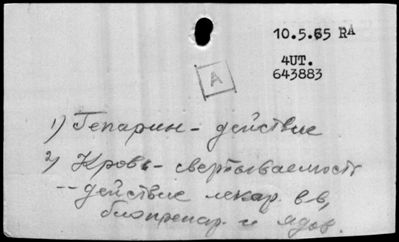 10.5.65 RA
4UT.
643883
A
1) Гепарин - действие
2) Кровь - свертываемость
-- действие лекар. в-в,
биопрепар. и ядов.